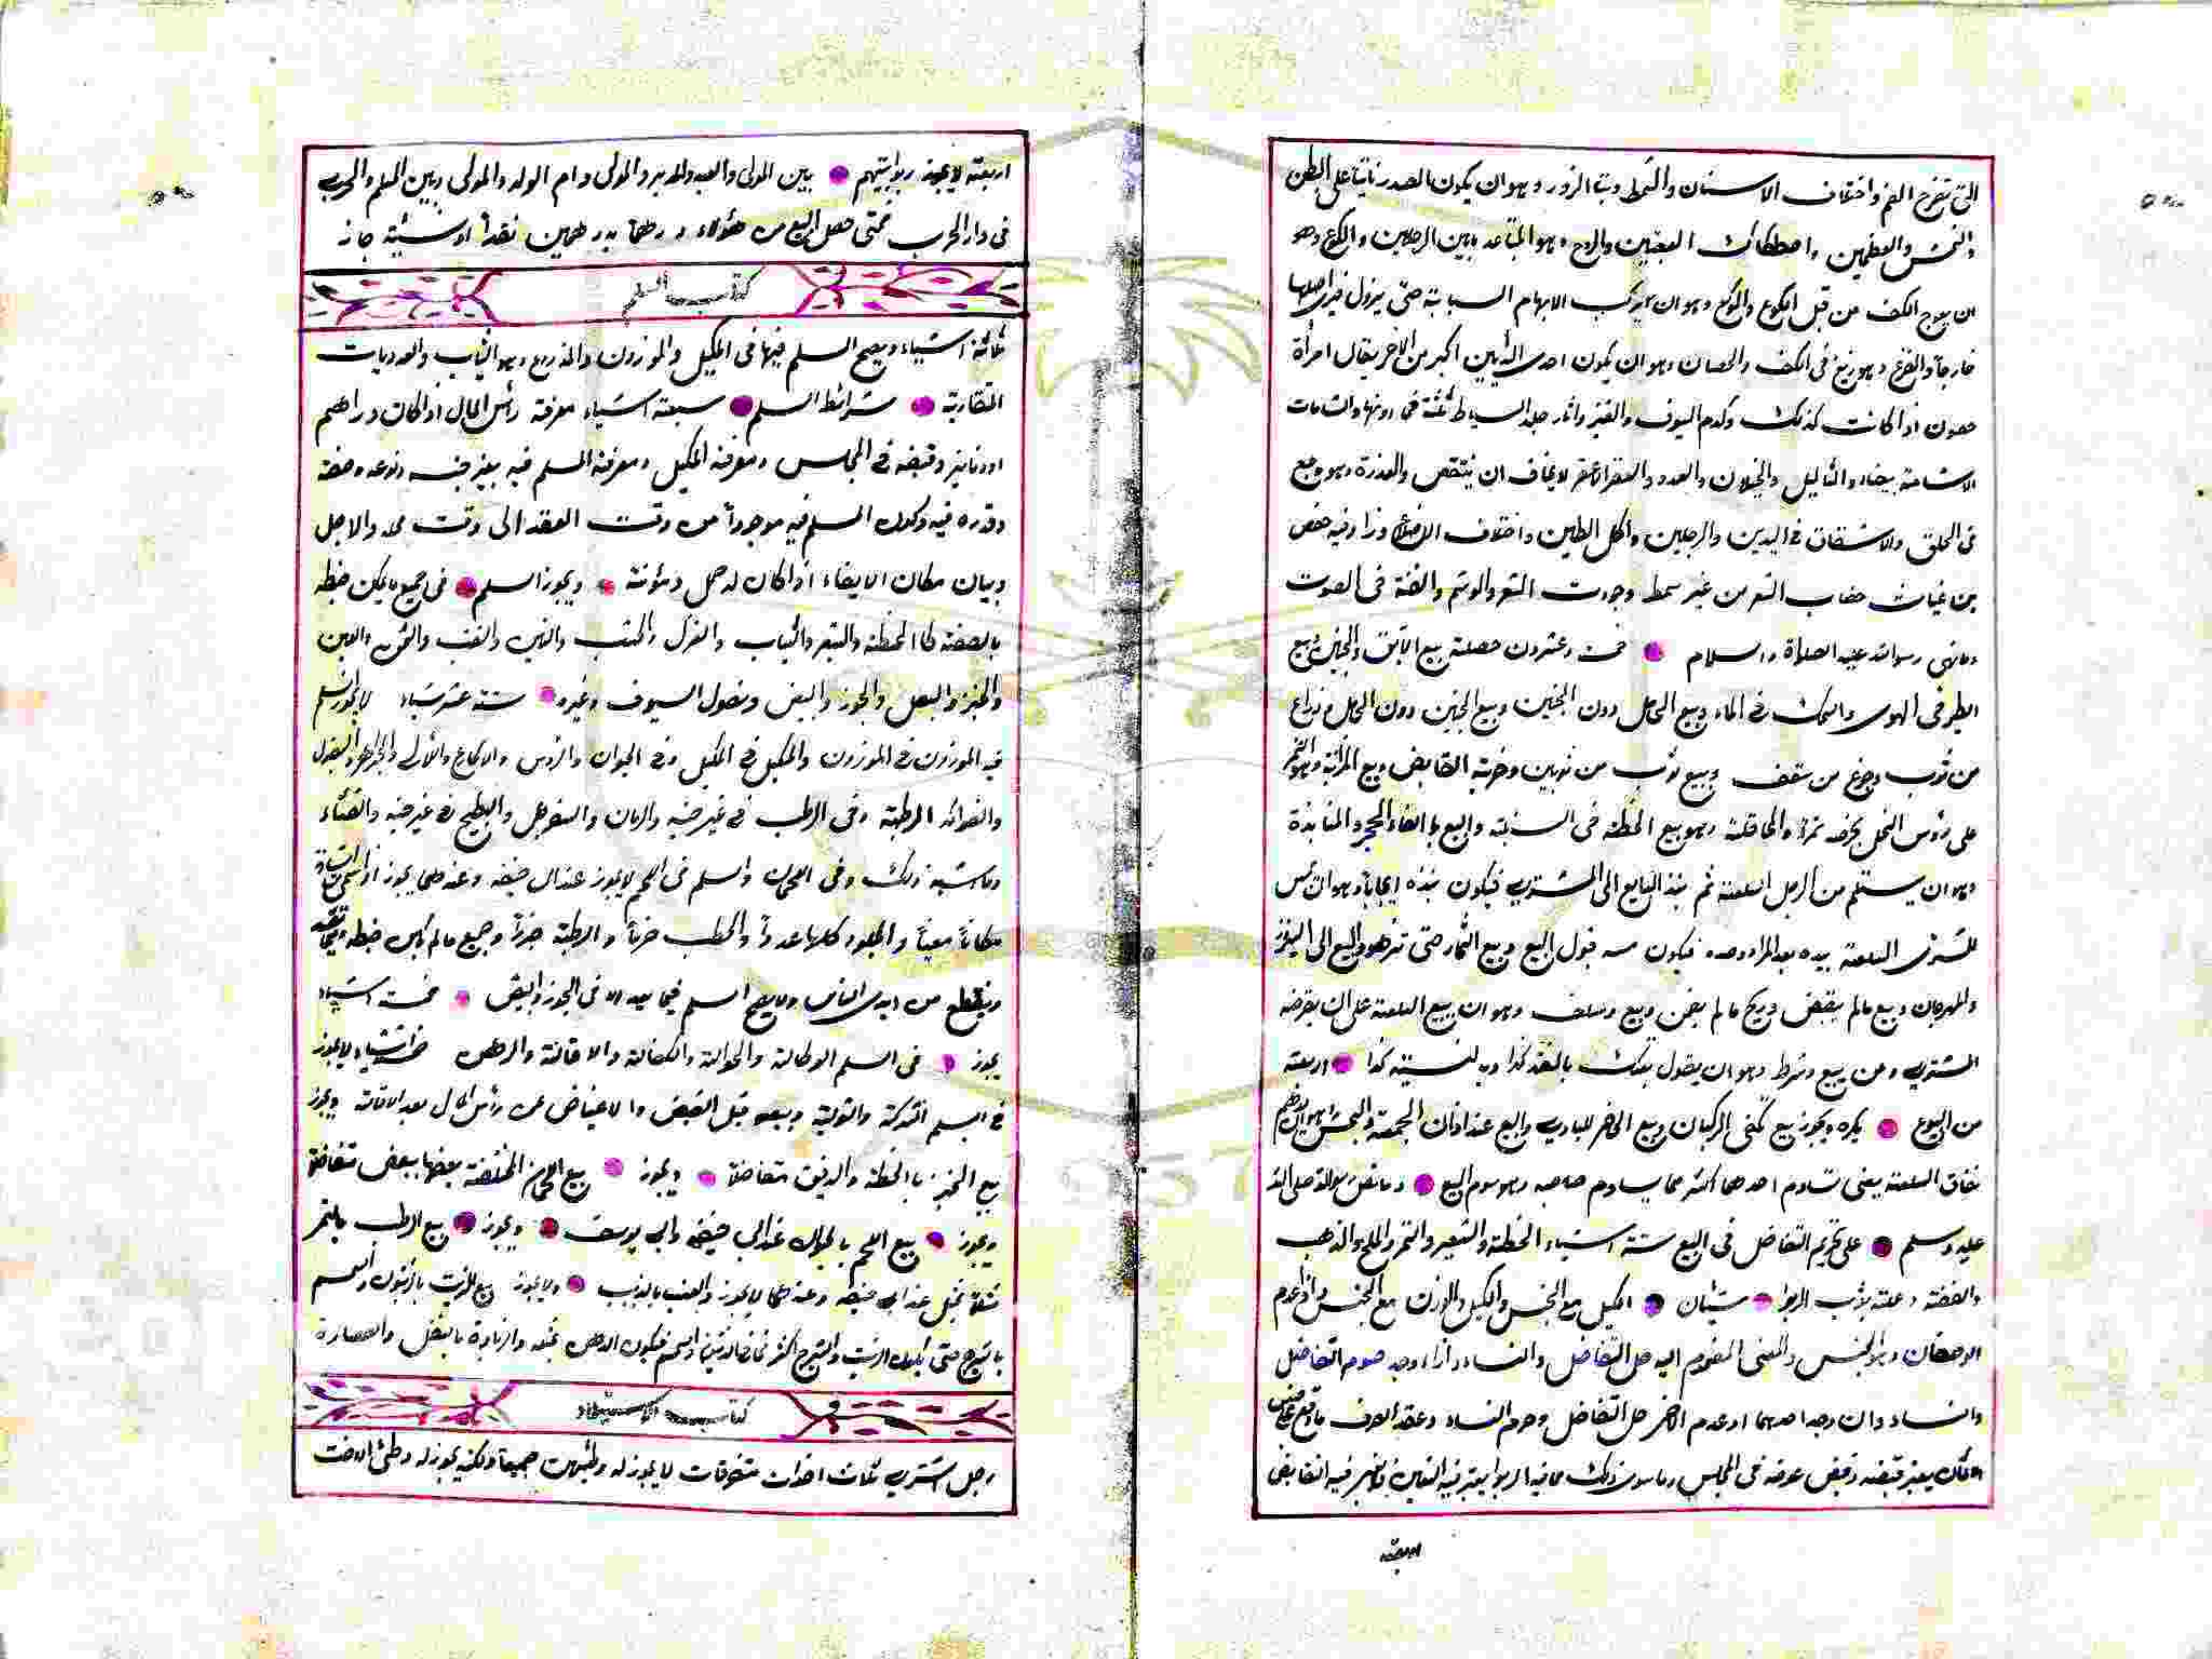 التى تخرج الفم واختلاف الاسنان والشمط ونتا الزور وهو ان يكون الصدر ناتيا على البطن
والعظمين واصطكاك والروح وهو المتباعد ما بين الرجلين والكوع وهو
ان يعوج الكف من قبل الكوع والوكع وهو ان يركب الابهام السبابة حتى يزول فيرى اصلها
خارجا والفدع وهو زيغ فى الكف والحصان وهو ان يكون احدى الثديين اكبر من الاخر يقال امرأة
حصون اذا كانت كذلك وكدم السيوف واثار جلد السياط ثلثة فى والشامات
الا شامة بيضاء والثاليل والخيلان والغدد لا يخاف ان ينتقص والعذرة وهو وجع
فى الحلق والاشقاق فى اليدين والرجلين واكل الطين واختلاف وزاد فيه حفص
بن غياث خضاب الشعر من غير سمط والوشم والغنة فى الصوت
وما نهى رسول الله عليه الصلاة والسلام خمسة وعشرون خصلة بيع الآبق والجنين وبيع
الطير فى الهوى والسمك فى الماء وبيع الحامل دون الجنين وبيع الجنين دون الحامل وذراع
من ثوب وجذع من سقف وبيع ثوب من ثوبين وضربة القانص وبيع المزابنة وهو التمر
على رؤس النخل بخرصه تمرا والمحاقلة وهو بيع الحنطة فى السنبلة والبيع بالقاء الحجر والمنابذة
وهو ان يستلم من الرجل السلعة ثم ينبذ البايع الى المشترى فيكون نبذه ايجابا وهو ان يمس
المشترى السلعة بيده بعد المراوضة فيكون مسه قبول البيع وبيع الثمار حتى تزهو والبيع الى النيروز
والمهرجان وبيع ما لم يقبض وربح ما لم يضمن وبيع وسلف وهو ان يبيع السلعة على ان يقرضه
المشترى وعن بيع وشرط وهو ان يقول بعتك بالنقد كذا وبالنسيئة كذا اربعة
من البيوع يكره ويجوز بيع تلقى الركبان وبيع الحاضر للبادى والبيع عند اذان الجمعة والنجش
نفاق السلعة يعنى تساوم احدهما اكثر مما يساوم صاحبه وهو سوم البيع وما نص رسول الله صلى الله
عليه وسلم على تحريم التفاضل فى البيع ستة اشياء الحنطة والشعير والتمر والملح والذهب
والفضة وعلته باب الربوا شيئان الكيل مع الجنس والكيل والوزن مع الجنس فاذا عدم
الوصفان وهو الجنس والمعنى المضموم اليه حل التفاضل والنساء واذا وجد حرم التفاضل
والنساء وان وجد احدهما وعدم الاخر حل التفاضل وحرم النساء وعقد الصرف ما وقع على جنس
الاثمان يعتبر قبضه وقبض عوضه فى المجلس وما سوى ذلك مما فيه الربوا يعتبر فيه التعيين ولا يعتبر فيه التقابض
اربعة
اربعة لا يجوز ربوا بينهم بين المولى والعبد والمدبر والمولى وام الولد والمولى وبين المسلم والحربى
فى دار الحرب فمتى حصل البيع من هؤلاء درهما بدرهمين نقدا او نسيئة جاز
كتاب السلم
ثلاثة اشياء ويصح السلم فيها فى المكيل والموزون والمذروع وهو الثياب والعدديات
المتقاربة شرائط السلم سبعة اشياء معرفة رأس المال اذا كان دراهم
او دنانير وقبضه فى المجلس ومعرفة المكيل ومعرفة المسلم فيه يعنى جنسه ونوعه وصفته
وقدره فيه وكون المسلم فيه موجودا من وقت العقد الى وقت محله والاجل
وبيان مكان الايفاء اذا كان له حمل ومؤنة ويجوز السلم فى جميع ما يمكن ضبطه
بالصفة كالحنطة والشعير والثياب والغزل والخشب والتبن والقت والسمن واللبن
والخبز والبصل والجوز والبيض ونصول السيوف وغيره ستة عشر شياء لا يجوز السلم
فيه الموزون فى الموزون والمكيل فى المكيل وفى الحيوان والروس والاكارع واللآلى والجواهر والبقول
والفواكه الرطبة وفى الرطب فى غير حينه والرمان والسفرجل والبطيخ فى غير حينه والقثاء
وما شبه ذلك وفى العجين والسلم فى اللحم لا يجوز عند ابى حنيفة وعندهما يجوز اذا سمى من الشاة
مكانا معينا والجلود كلها عددا والحطب حزما والرطبة جرزا وجميع ما لم يمكن ضبطه
وينقطع من ايدى الناس ولا يصح السلم فيما يعد الا فى الجوز والبيض خمسة اشياء
يجوز فى السلم الوكالة والحوالة والكفالة والاقالة والرهن خمسة اشياء لا يجوز
فى السلم الشركة والتولية وبيعه قبل القبض والاعتياض عن رأس المال بعد الاقالة ويجوز
بيع الخبز بالحنطة والدقيق متفاضلا ويجوز بيع اللحمان المختلفة بعضها ببعض متفاضلا
ويجوز بيع اللحم بالحيوان عند ابى حنيفة وابى يوسف ويجوز بيع الرطب بالتمر
مثلا بمثل عند ابى حنيفة وعندهما لا يجوز والعنب بالزبيب ولا يجوز بيع الزيت بالزيتون والسمسم
بالشيرج حتى يكون الزيت والشيرج اكثر مما فى الزيتون والسمسم فيكون الدهن بمثله والزيادة بالثفل والعصارة
كتاب الاستبراء
رجل اشترى ثلاث اخوات متفرقات لا يجوز له وطيهن جميعا ولكنه يجوز له وطئ الاخت